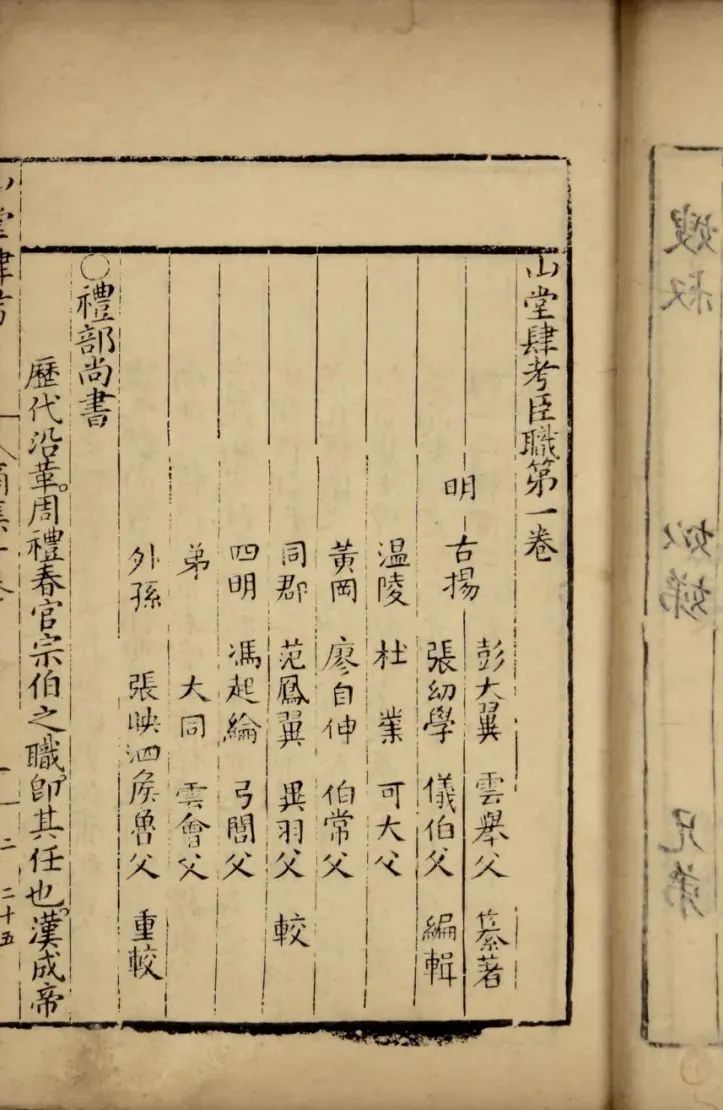 山堂肆考臣職第一卷
明 古揚 彭大翼 雲舉父 纂著
張幼學 儀伯父 編輯
溫陵 杜業 可大父
黃岡 廖自伸 伯常父
同郡 范鳳翼 異羽父 較
四明 馮起綸 弓閭父
弟 大同 雲會父
外孫 張映泗矦魯父 重較
○禮部尚書
歷代沿革。周禮春官宗伯之職。卽其任也。漢成帝
山堂肆考
二 二十五
嫂叔 姒娣 兄弟